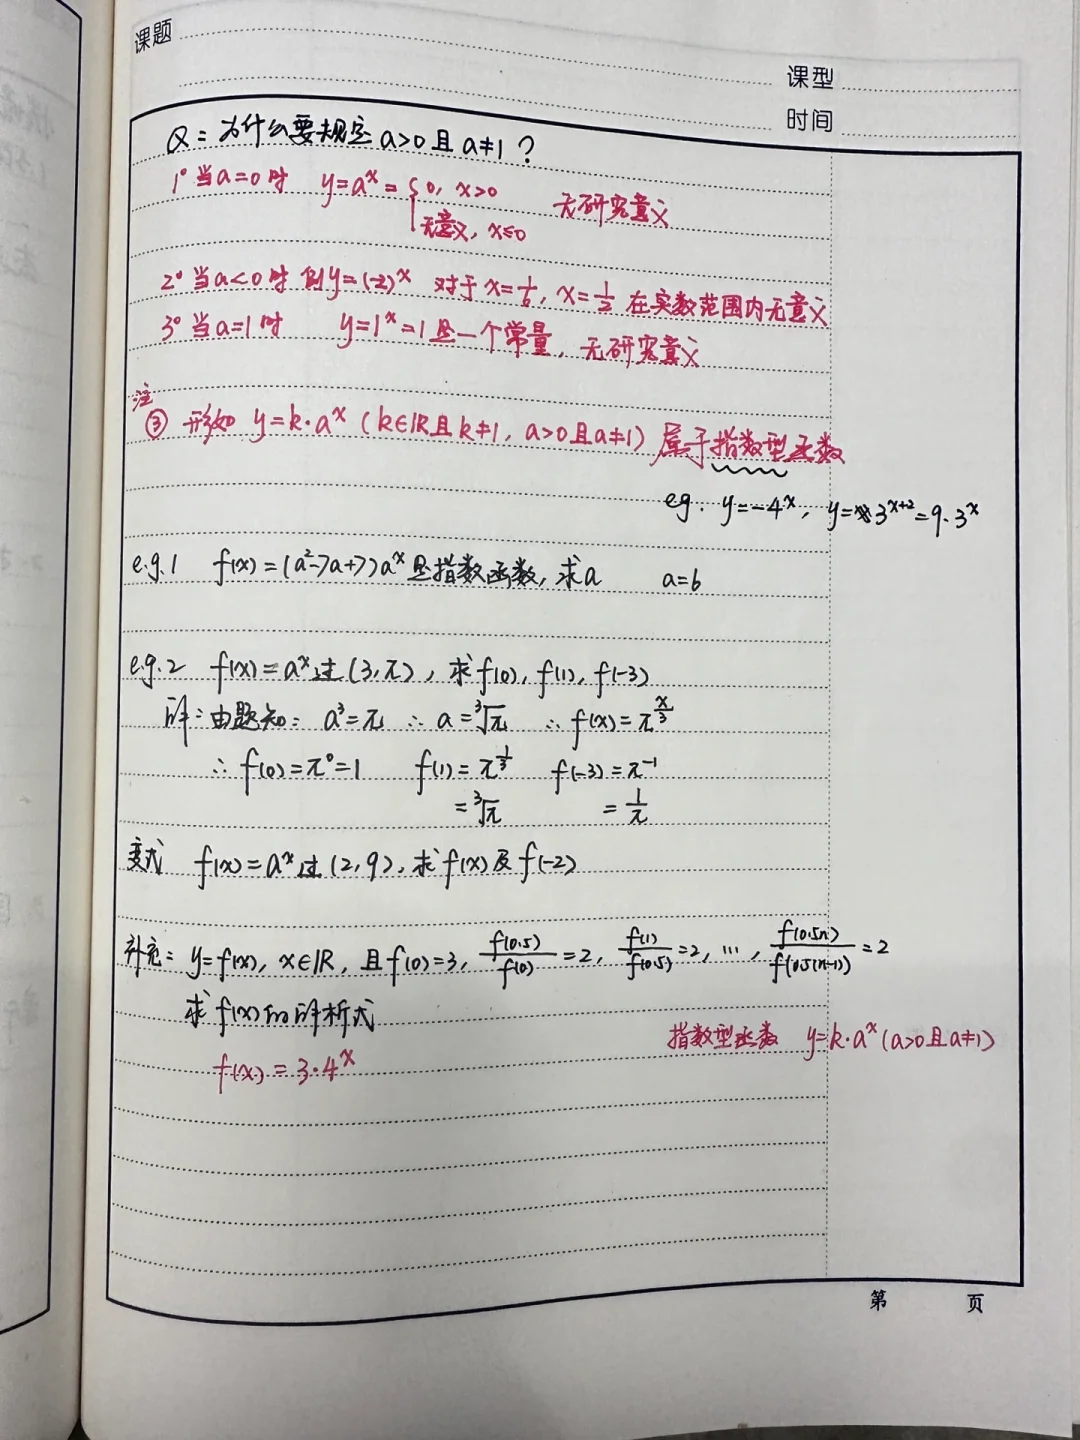 课题
课型
时间
Q：为什么要规定 a>0 且 a≠1？
1° 当a=0时 y=aˣ={0, x>0 无研究意义
无意义, x≤0
2° 当a<0时 例y=(-2)ˣ 对于 x=1/6, x=1/2 在实数范围内无意义
3° 当a=1时 y=1ˣ=1是一个常量, 无研究意义
注
③ 形如 y=k·aˣ (k∈R且k≠1, a>0且a≠1) 属于指数型函数
eg. y=-4ˣ, y=3ˣ⁺²=9·3ˣ
e.g.1 f(x)=(a²-7a+7)aˣ是指数函数, 求a a=6
e.g.2 f(x)=aˣ过(3,π), 求f(0), f(1), f(-3)
解：由题知：a³=π ∴ a=³√π ∴ f(x)=π^(x/3)
∴ f(0)=π⁰=1 f(1)=π^(1/3) f(-3)=π⁻¹
=³√π =1/π
变式 f(x)=aˣ过(2,9), 求f(x)及f(-2)
补充：y=f(x), x∈R, 且f(0)=3, f(0.5)/f(0)=2, f(1)/f(0.5)=2, …, f(0.5n)/f(0.5(n-1))=2
求f(x)的解析式
指数型函数 y=k·aˣ(a>0且a≠1)
f(x)=3·4ˣ
第 页